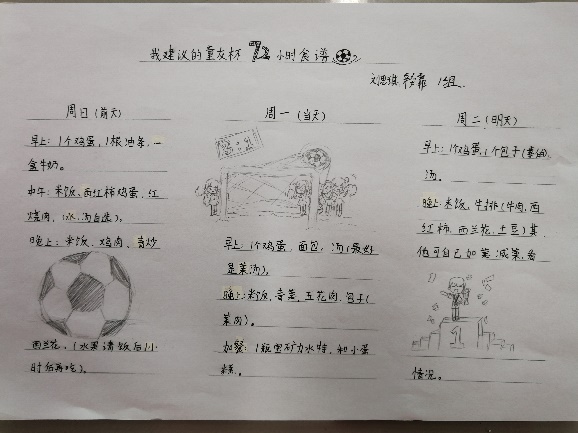 我建议的重友杯72小时食谱
1组
周日(前天)
早上:1个鸡蛋,1根油条,一
盒牛奶。
中午:米饭、西红柿鸡蛋,红
烧肉,(水、汤自选)。
晚上:米饭、鸡肉、清炒
西兰花、(水果请饭后1小
时后再吃)。
周一(当天)
早上:1个鸡蛋,面包,汤(最好
是菜汤)。
晚上:米饭、青菜,五花肉,包子(
菜肉)。
加餐:1瓶里矿力水特,和小蛋
糕。
周二(明天)
早上:1个鸡蛋,1个包子(素馅),
汤。
晚上:米饭,牛排(牛肉,西
红柿、西兰花,土豆)其
他可自己加菜减菜,看
1
情况。